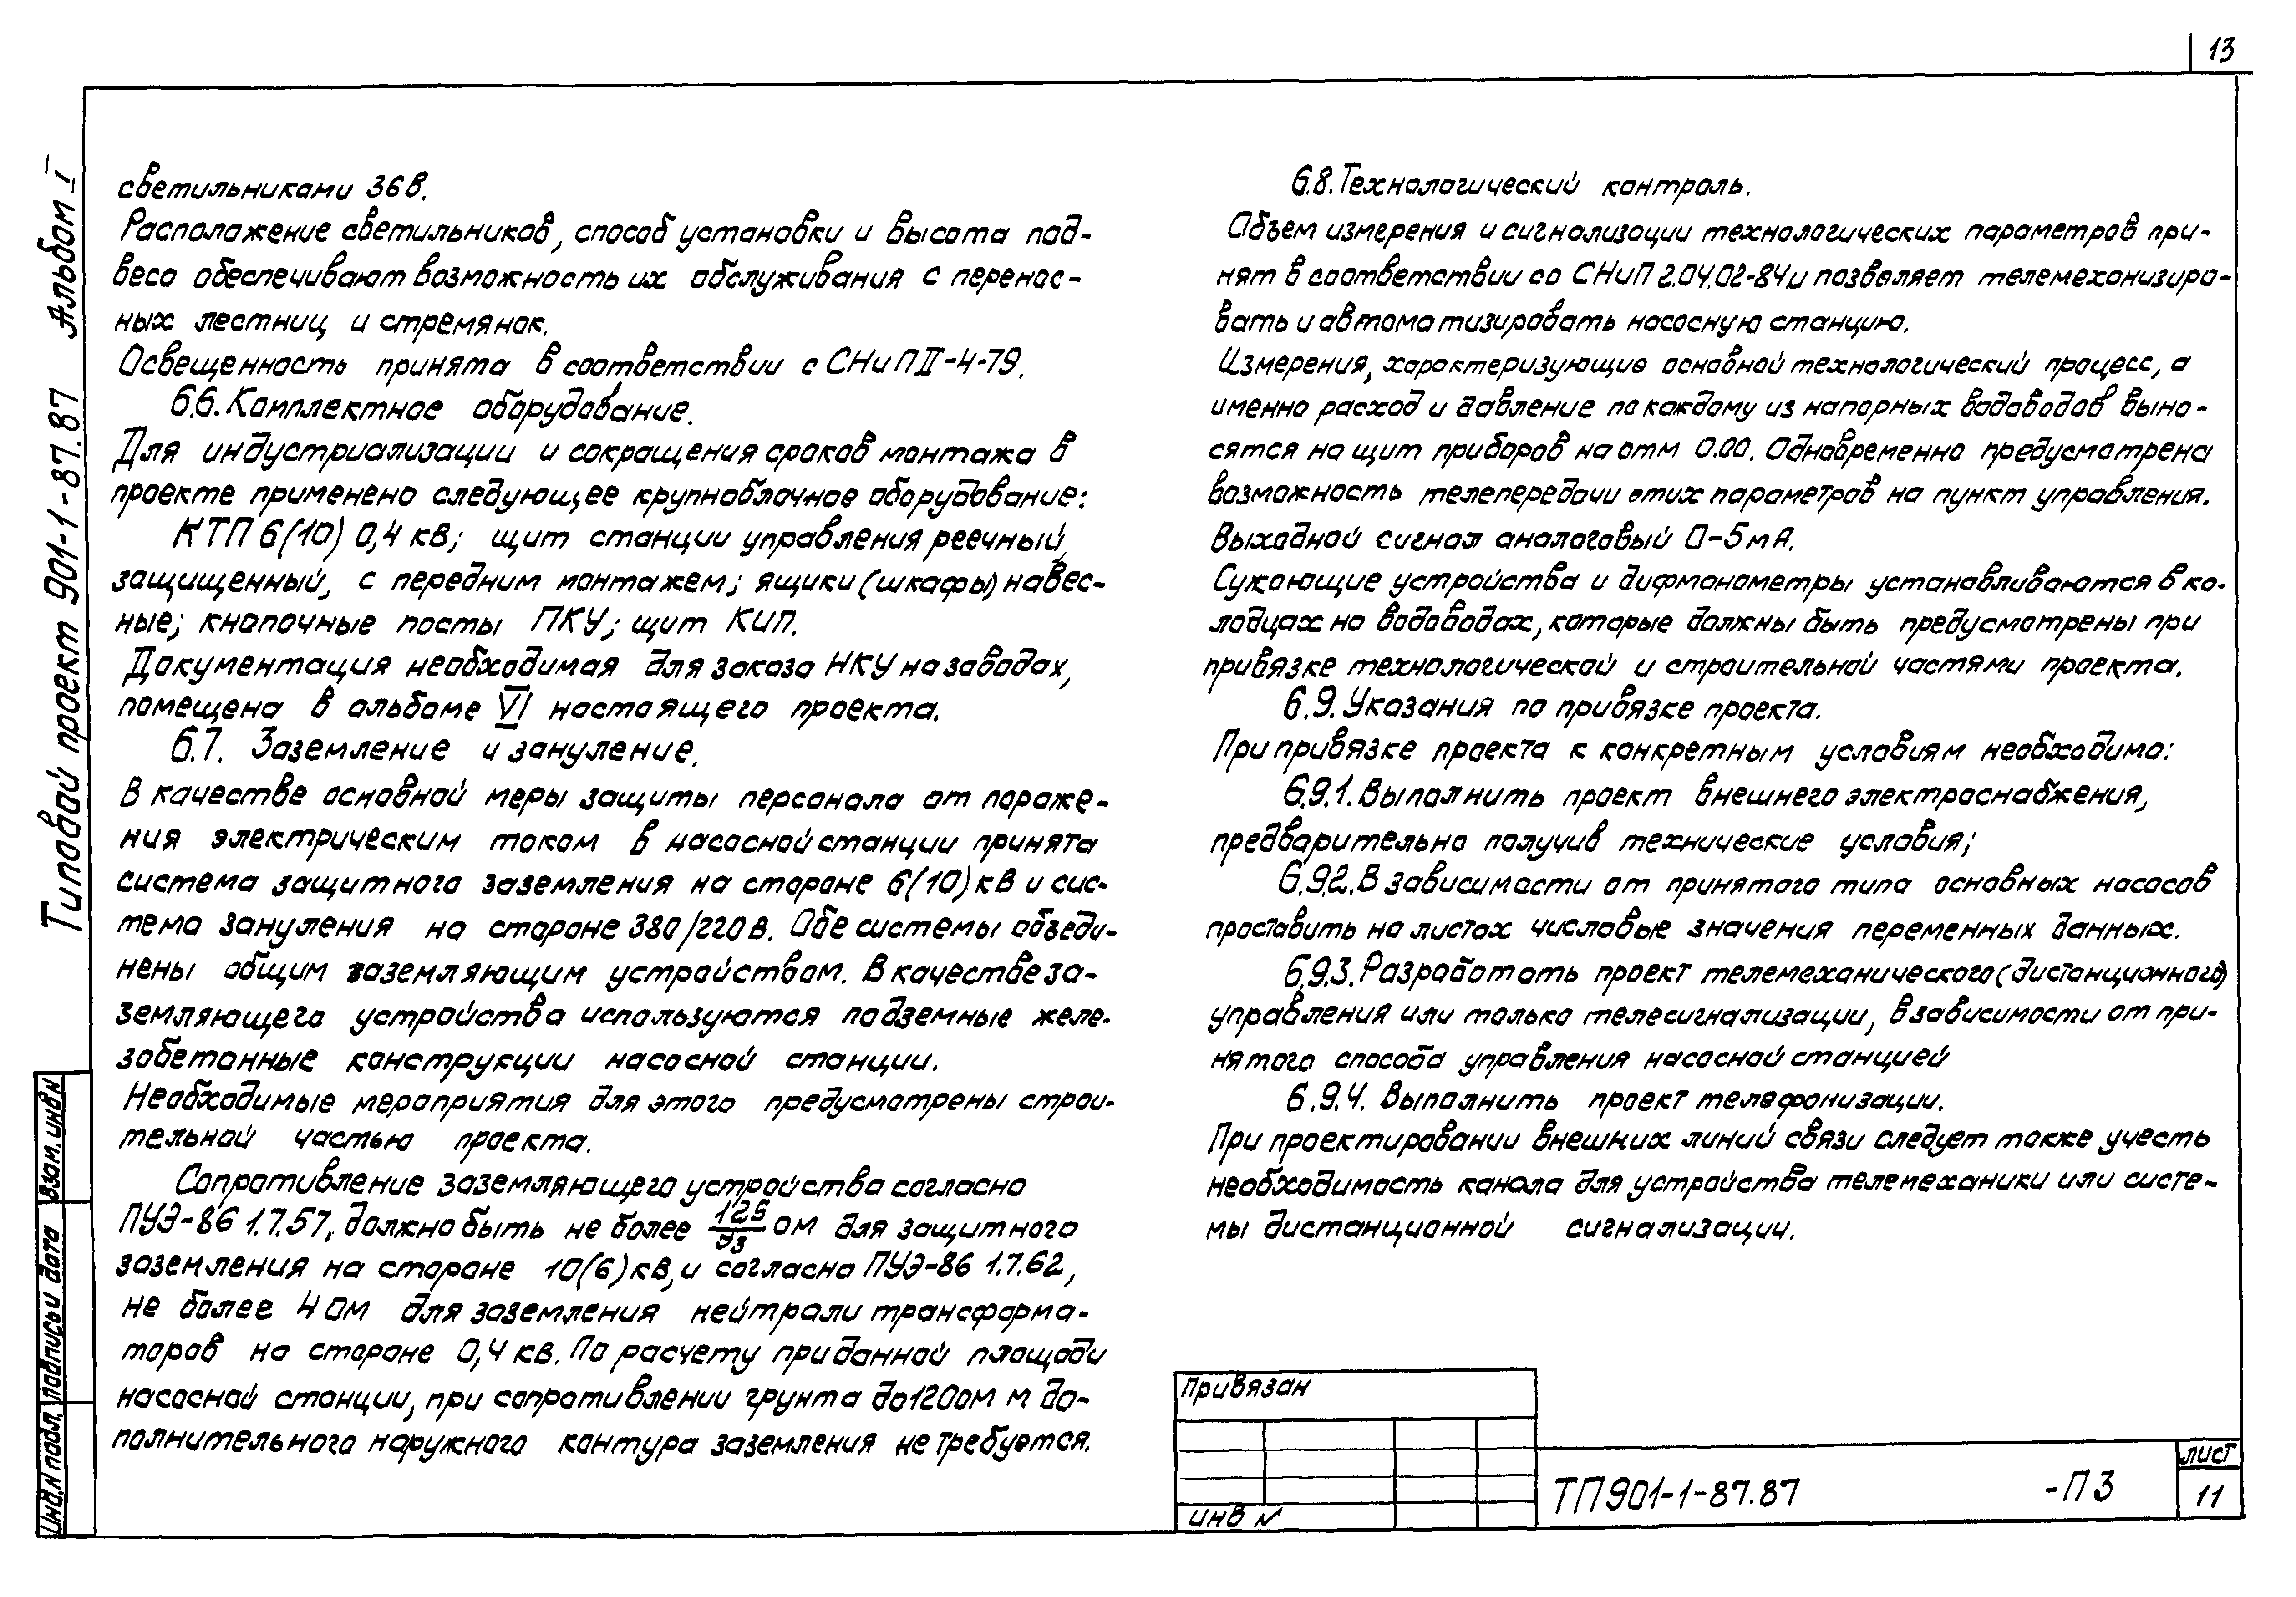 13
Типовой проект 901-1-87.87 Альбом I
светильниками 36 В.
Расположение светильников, способ установки и высота под-
веса обеспечивают возможность их обслуживания с перенос-
ных лестниц и стремянок.
Освещенность принята в соответствии с СНиП II-4-79.
6.6. Комплектное оборудование.
Для индустриализации и сокращения сроков монтажа в
проекте применено следующее крупноблочное оборудование:
КТП 6(10) 0,4 кВ; щит станции управления реечный,
защищенный, с передним монтажем; ящики (шкафы) навес-
ные; кнопочные посты ПКУ; щит КИП.
Документация необходимая для заказа НКУ на заводах,
помещена в альбоме VI настоящего проекта.
6.7. Заземление и зануление.
В качестве основной меры защиты персонала от пораже-
ния электрическим током в насосной станции принята
система защитного заземления на стороне 6(10) кВ и сис-
тема зануления на стороне 380/220 В. Обе системы объеди-
нены общим заземляющим устройством. В качестве за-
земляющего устройства используются подземные желе-
зобетонные конструкции насосной станции.
Необходимые мероприятия для этого предусмотрены строи-
тельной частью проекта.
Сопротивление заземляющего устройства согласно
ПУЭ-86 1.7.57, должно быть не более 125/Jз ом для защитного
заземления на стороне 10(6) кВ, и согласно ПУЭ-86 1.7.62,
не более 4 Ом для заземления нейтрали трансформа-
торов на стороне 0,4 кВ. По расчету при данной площади
насосной станции, при сопротивлении грунта до 120 ом м до-
полнительного наружного контура заземления не требуется.
6.8. Технологический контроль.
Объем измерения и сигнализации технологических параметров при-
нят в соответствии со СНиП 2.04.02-84 и позволяет телемеханизиро-
вать и автоматизировать насосную станцию.
Измерения, характеризующие основной технологический процесс, а
именно расход и давление по каждому из напорных водоводов выно-
сятся на щит приборов на отм 0.00. Одновременно предусмотрена
возможность телепередачи этих параметров на пункт управления.
Выходной сигнал аналоговый 0-5 mA.
Сужающие устройства и дифманометры устанавливаются в ко-
лодцах на водоводах, которые должны быть предусмотрены при
привязке технологической и строительной частями проекта.
6.9. Указания по привязке проекта.
При привязке проекта к конкретным условиям необходимо:
6.9.1. Выполнить проект внешнего электроснабжения,
предварительно получив технические условия;
6.9.2. В зависимости от принятого типа основных насосов
проставить на листах числовые значения переменных данных.
6.9.3. Разработать проект телемеханического (дистанционного)
управления или только телесигнализации, в зависимости от при-
нятого способа управления насосной станцией
6.9.4. Выполнить проект телефонизации.
При проектировании внешних линий связи следует также учесть
необходимость канала для устройства телемеханики или систе-
мы дистанционной сигнализации.
Инв.N подл. Подпись и дата Взам. инв N
Привязан
инв N
ТП 901-1-87.87 -ПЗ
лист
11